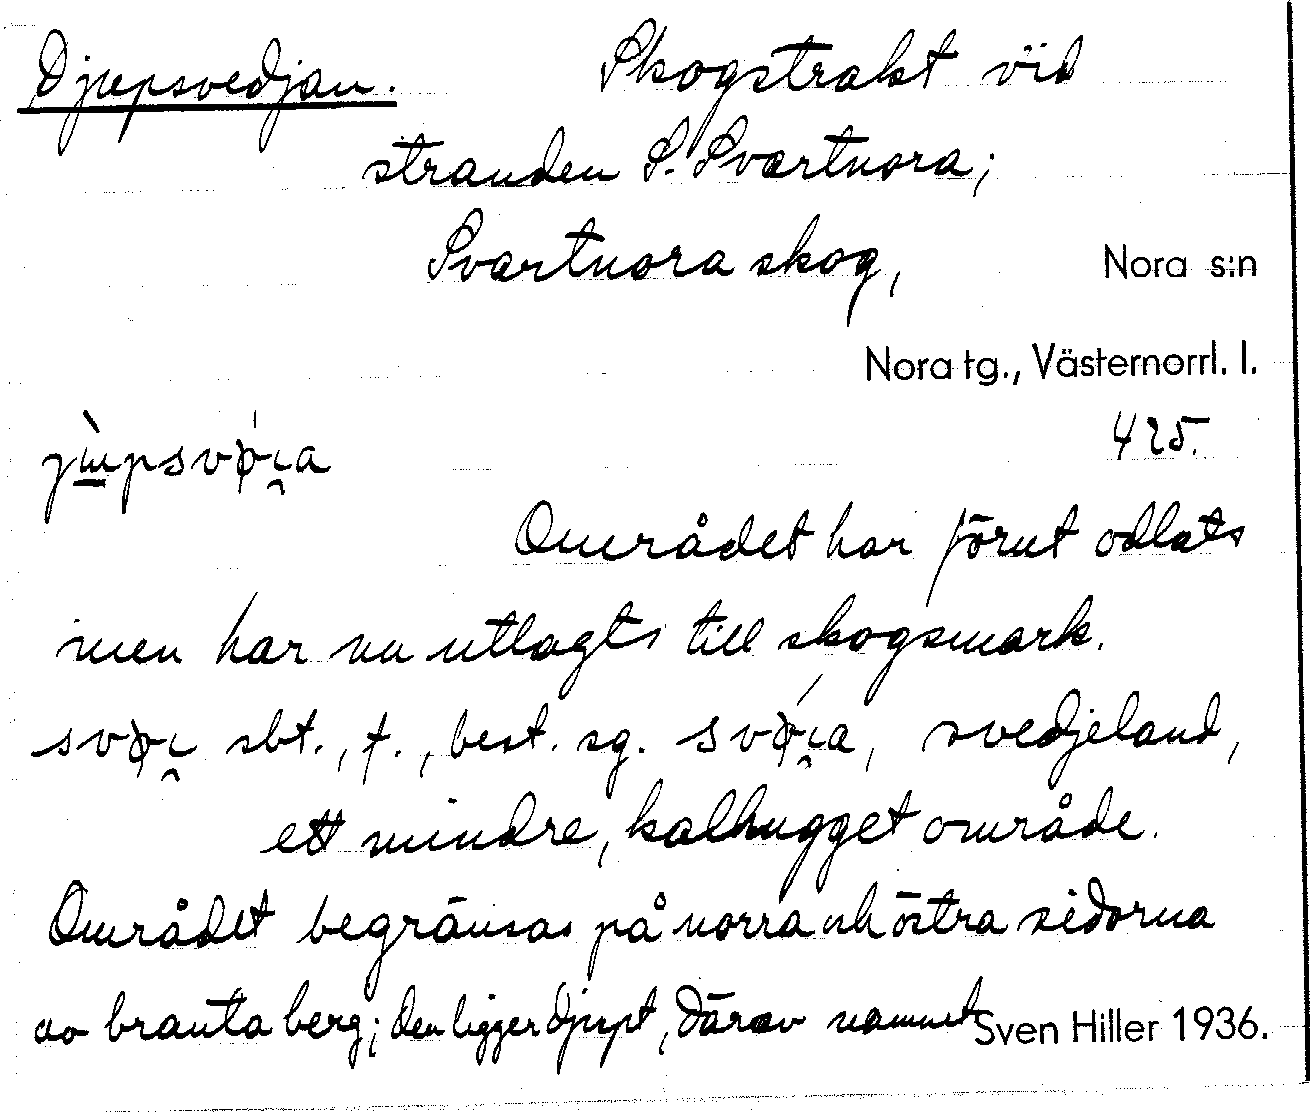 Djupsvedjan. Skogstrakt vid
stranden S. Svartnora;
Svartnora skog, Nora s:n
Nora tg., Västernorrl. l.
425.
Området har förut odlats
men har nu utlagts till skogsmark.
sbt., f., best. sg. svedjeland,
ett mindre, kalhugget område.
Området begränsas på norra och östra sidorna
av branta berg; den ligger djupt, därav namnet
Sven Hiller 1936.